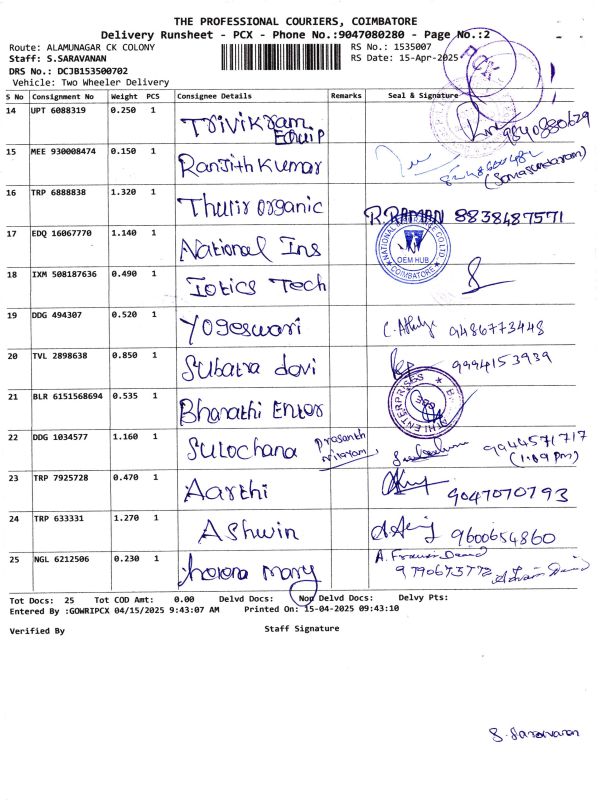 THE PROFESSIONAL COURIERS, COIMBATORE
Delivery Runsheet - PCX - Phone No.:9047080280 - Page No.:2
Route: ALAMUNAGAR CK COLONY RS No.: 1535007
Staff: S.SARAVANAN RS Date: 15-Apr-2025
DRS No.: DCJB153500702
Vehicle: Two Wheeler Delivery
S No Consignment No Weight PCS Consignee Details Remarks Seal & Signature
14 UPT 6088319 0.250 1 Trivikram Equip 9840880629
15 MEE 930008474 0.150 1 Ranjith Kumar
(Somasundaram)
16 TRP 6888838 1.320 1 Thulir organic R.RAMAN 8838487571
17 EDQ 16067770 1.140 1 National Ins OEM HUB COIMBATORE
18 IXM 508187636 0.490 1 Iotics Tech
19 DDG 494307 0.520 1 Yogeswari 9486773448
20 TVL 2898638 0.850 1 Subatra devi 9994153939
21 BLR 6151568694 0.535 1 Bharathi Enter
22 DDG 1034577 1.160 1 Sulochana Prasanth 9944571717
(1.09 pm)
23 TRP 7925728 0.470 1 Aarthi 9047070793
24 TRP 633331 1.270 1 Ashwin 9600654860
25 NGL 6212506 0.230 1 mary 9790673772
Tot Docs: 25 Tot COD Amt: 0.00 Delvd Docs: Non Delvd Docs: Delvy Pts:
Entered By :GOWRIPCX 04/15/2025 9:43:07 AM Printed On: 15-04-2025 09:43:10
Verified By Staff Signature
S. Saravanan